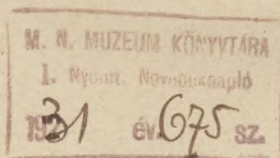 M. N. MUZEUM KÖNYVTÁRA
I. Nyomt. Növedéknapló
1931 év. 675 sz.